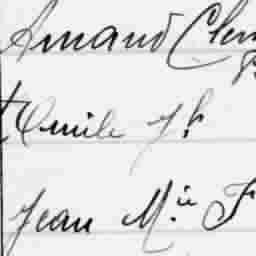 Amand Clem
Emile Jh
Jean M.ie F